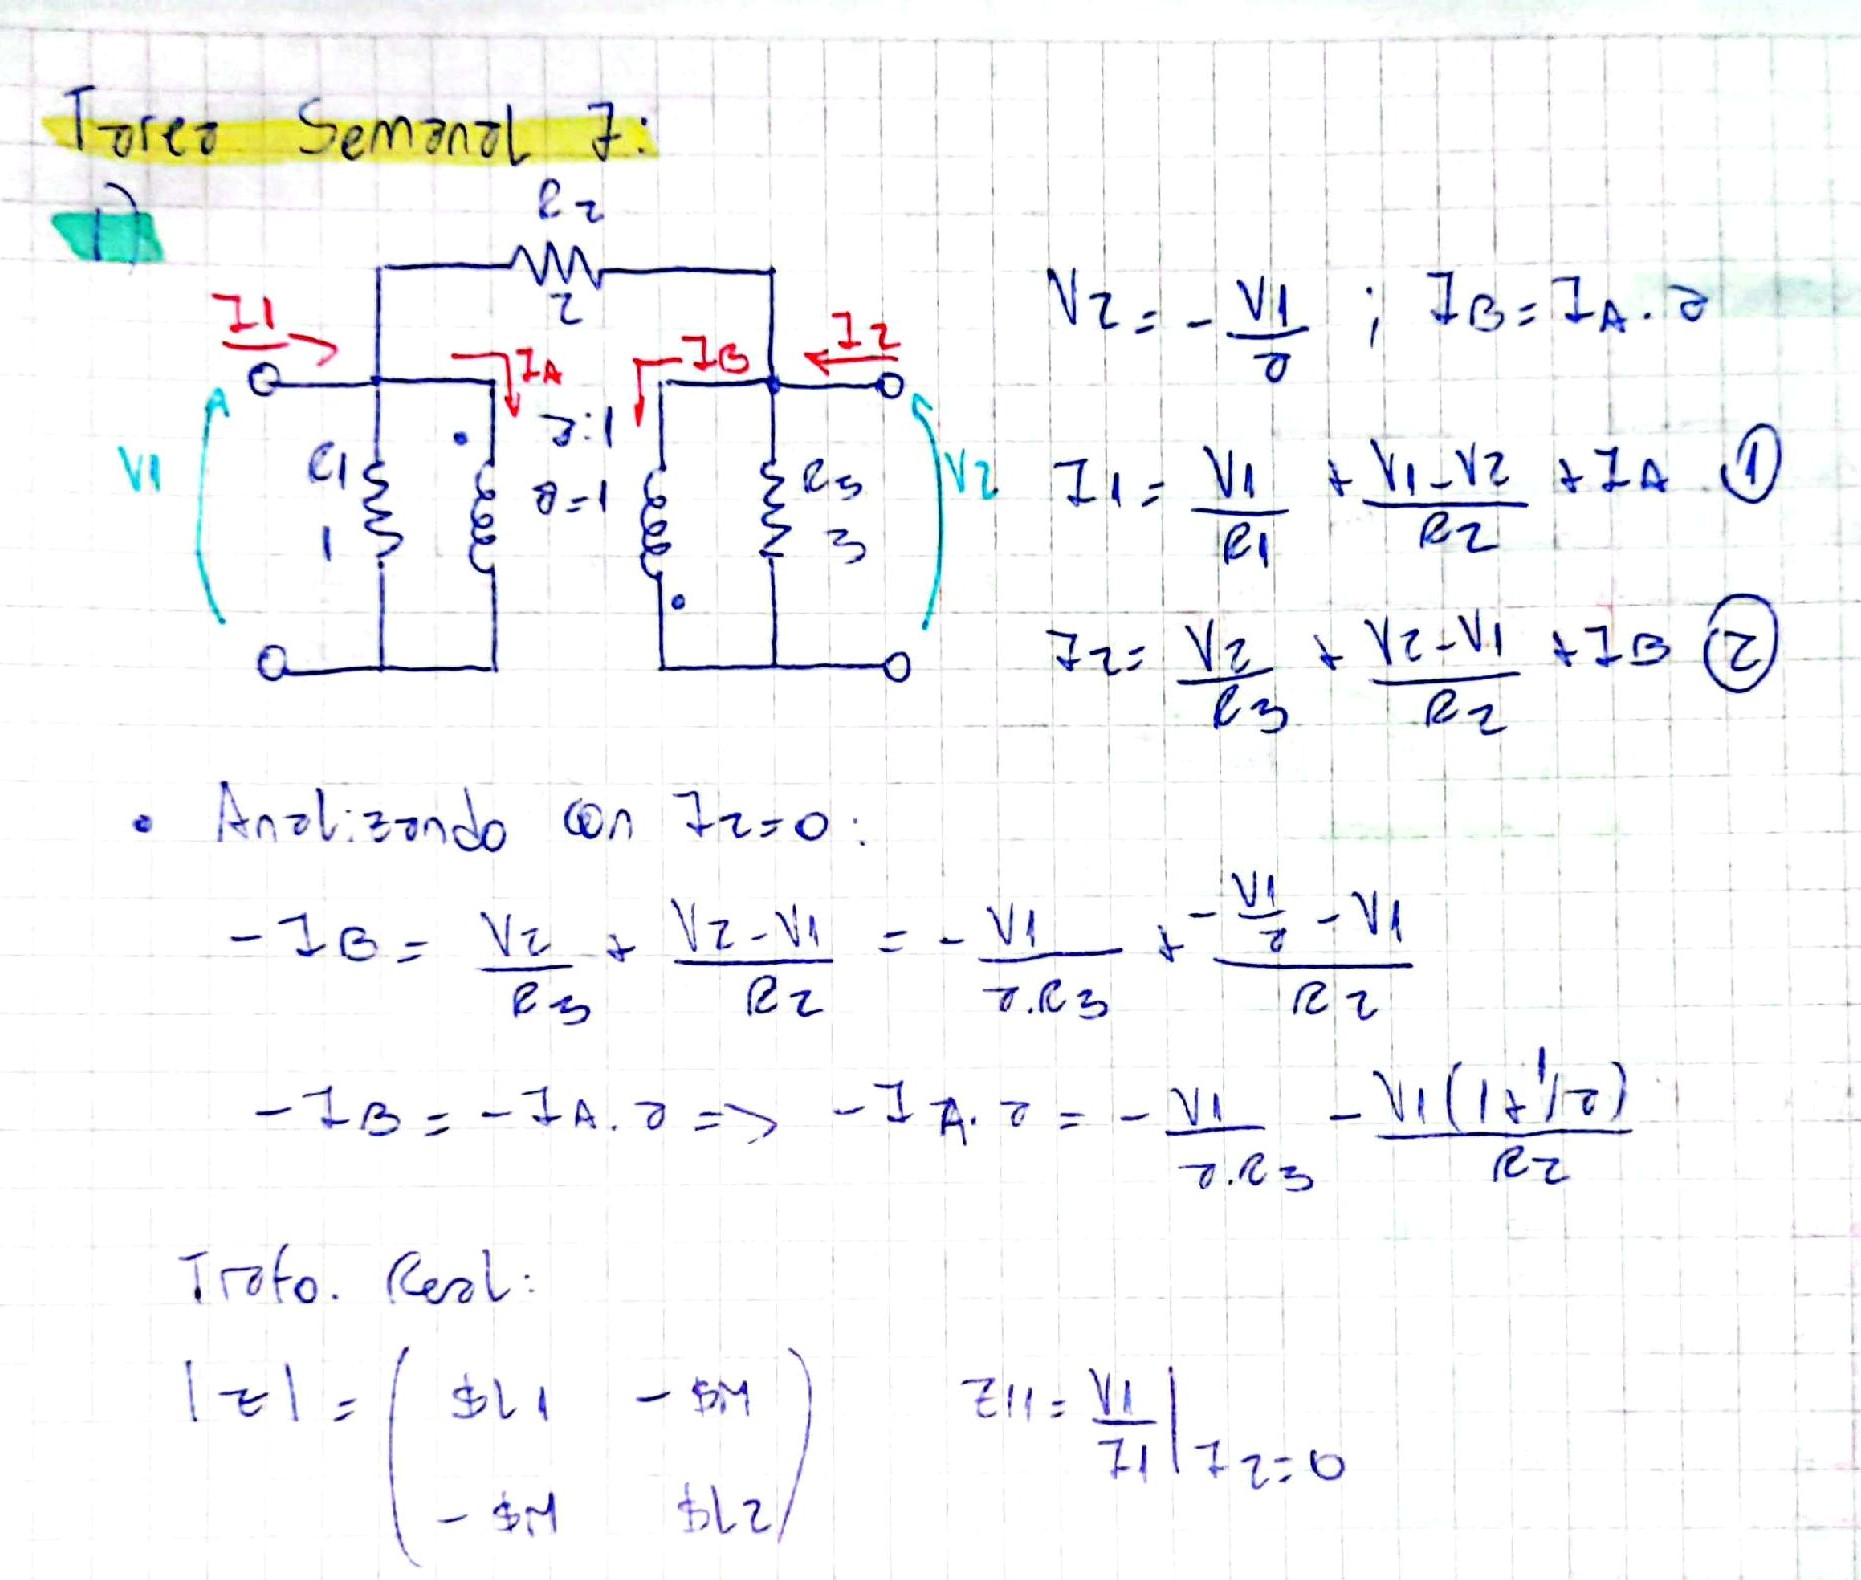 Tarea Semanal 7:
1)
R2
2
I1
IA
IB
I2
a:1
a=1
V1
R1
1
R3
3
V2
V2 = - V1/a ; IB = IA . a
I1 = V1/R1 + (V1 - V2)/R2 + IA ①
I2 = V2/R3 + (V2 - V1)/R2 + IB ②
• Analizando con I2=0:
- IB = V2/R3 + (V2 - V1)/R2 = - V1/(a.R3) + (- V1/a - V1)/R2
- IB = - IA . a => - IA . a = - V1/(a.R3) - V1(1+1/a)/R2
Trafo. Real:
|Z| = ( $L1 - $M
- $M $L2 )
Z11 = V1/I1 | I2=0